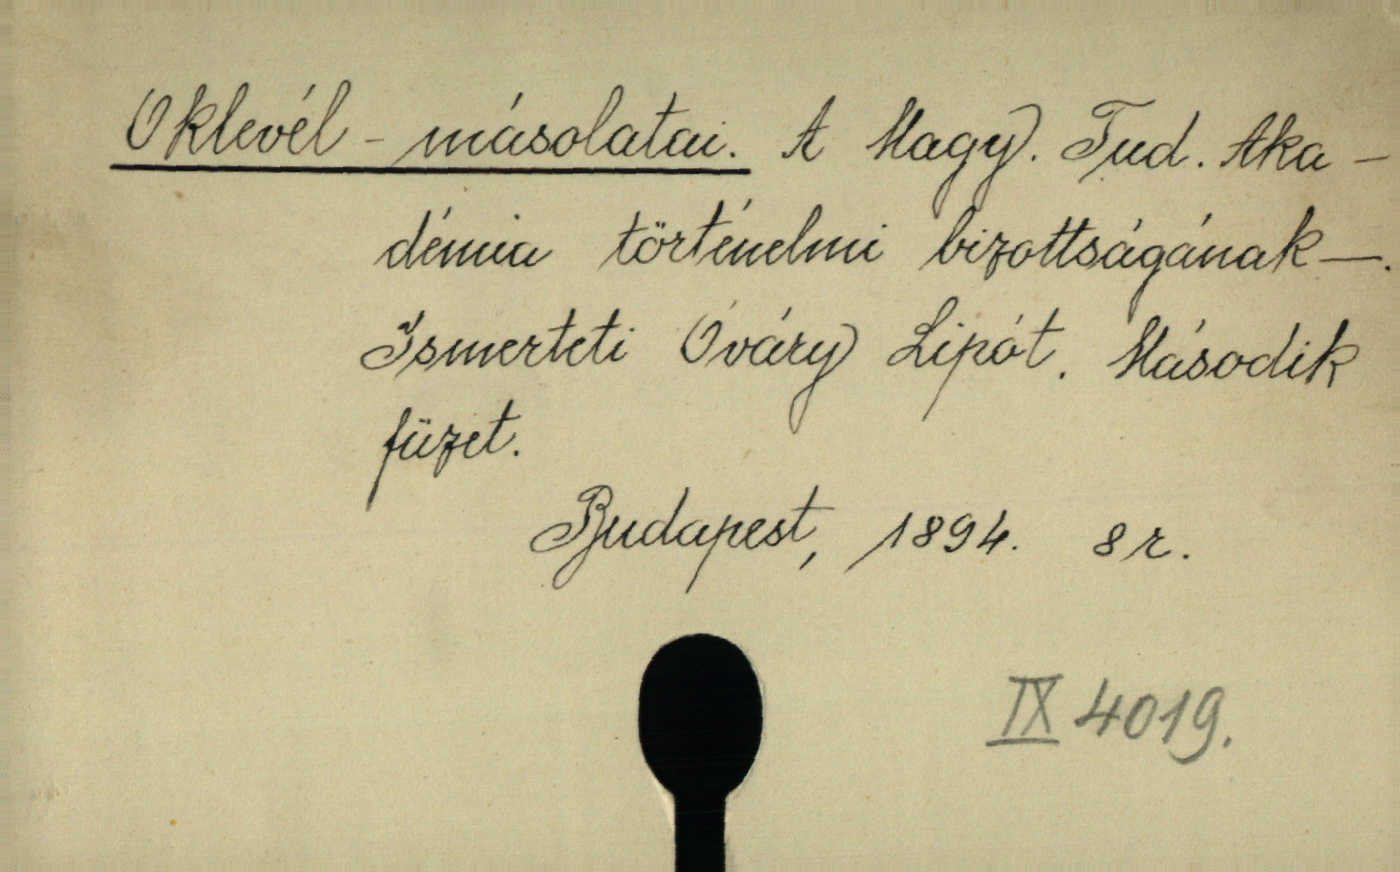 Oklevél-másolatai. A Magy. Tud. Aka-
démia történelmi bizottságának —.
Ismerteti Óváry Lipót. Második
füzet.
Budapest, 1894. 8r.
IX 4019.